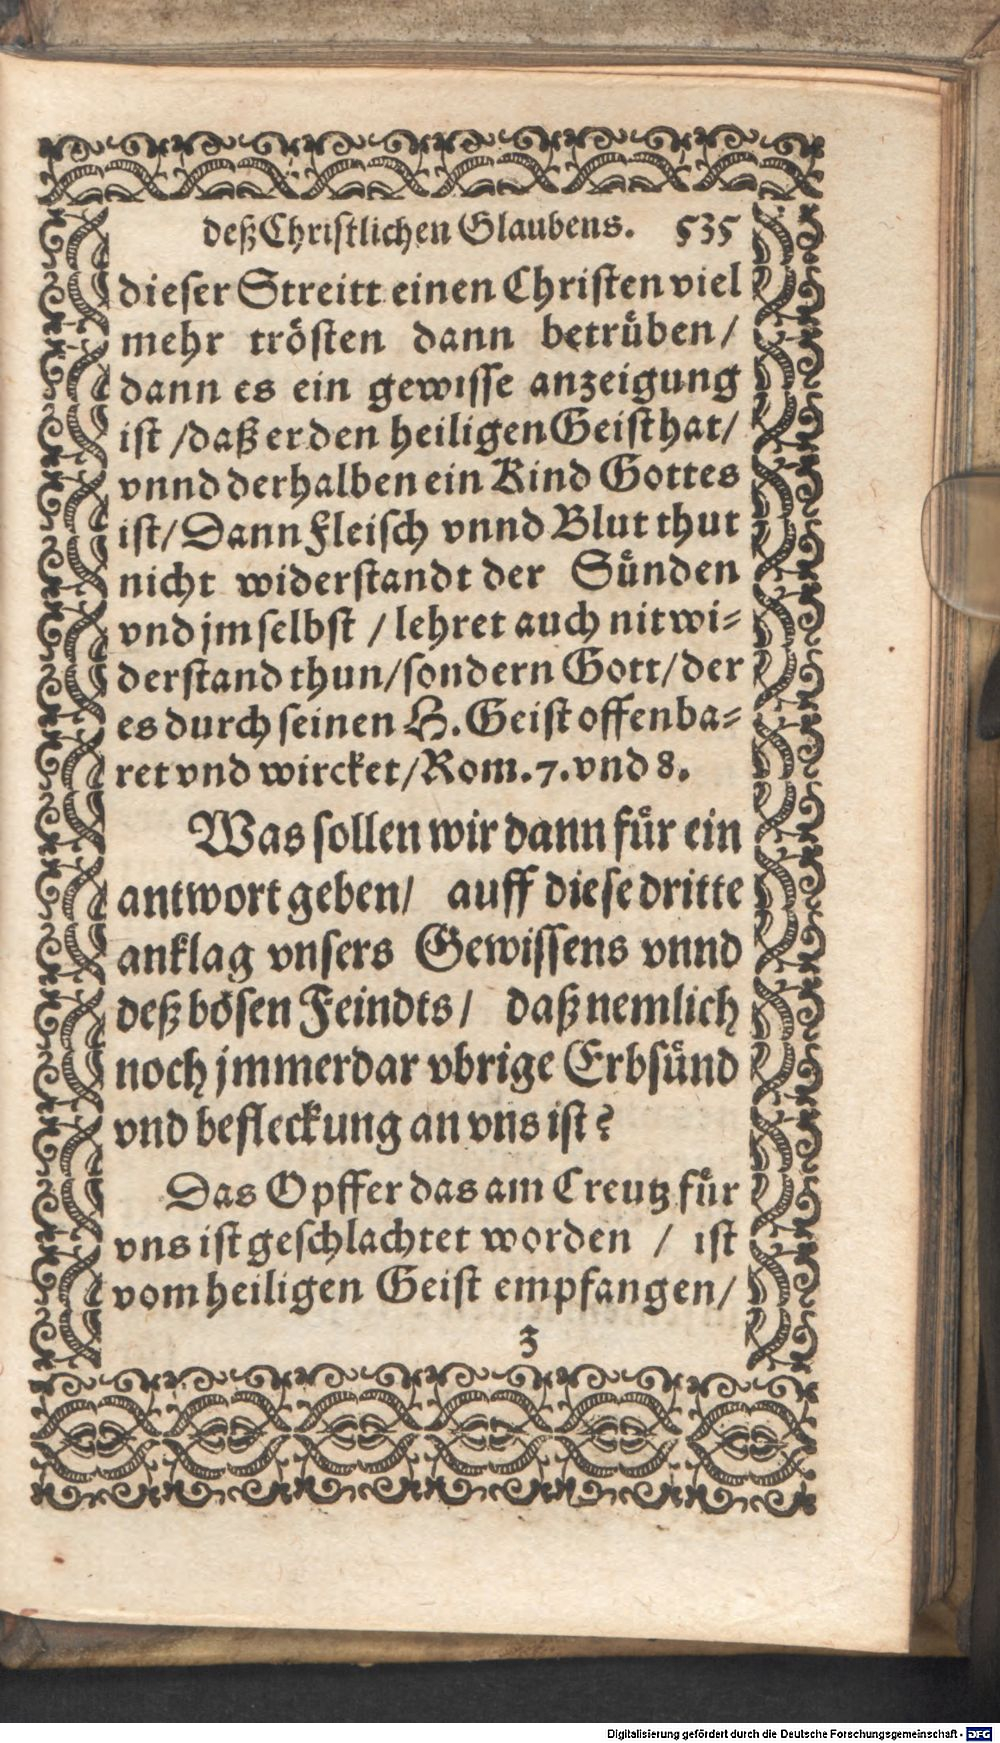 deß Christlichen Glaubens. 535
dieser Streitt einen Christen viel
mehr trösten dann betrüben/
dann es ein gewisse anzeigung
ist /daß er den heiligen Geist hat/
vnnd derhalben ein Kind Gottes
ist/ Dann Fleisch vnnd Blut thut
nicht widerstandt der Sünden
vnd jm selbst / lehret auch nit wi-
derstand thun/sondern Gott/der
es durch seinen H. Geist offenba-
ret vnd wircket/Rom. 7. vnd 8.
Was sollen wir dann für ein
antwort geben/ auff diese dritte
anklag vnsers Gewissens vnnd
deß bösen Feindts/ daß nemlich
noch jmmerdar vbrige Erbsünd
vnd befleckung an vns ist?
Das Opffer das am Creutz für
vns ist geschlachtet worden / ist
vom heiligen Geist empfangen/
3
Digitalisierung gefördert durch die Deutsche Forschungsgemeinschaft - DFG